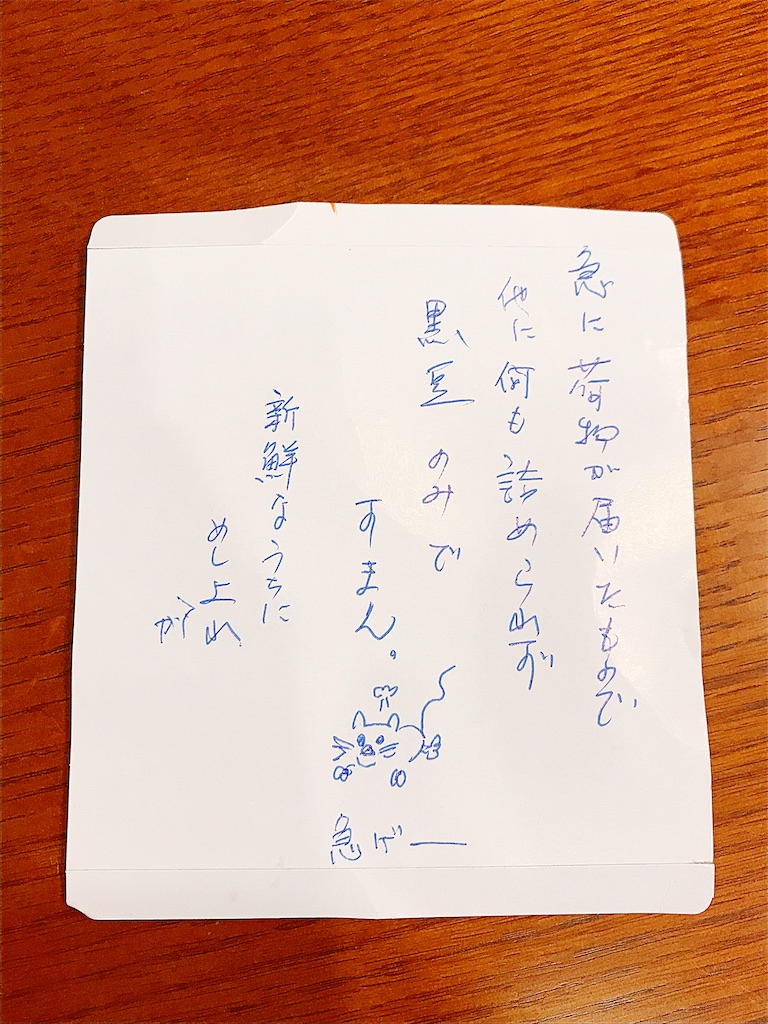 急に荷物が届いたもので
他に何も詰められず
黒豆のみで
すまん。
新鮮なうちに
めし上れ
が
急げー